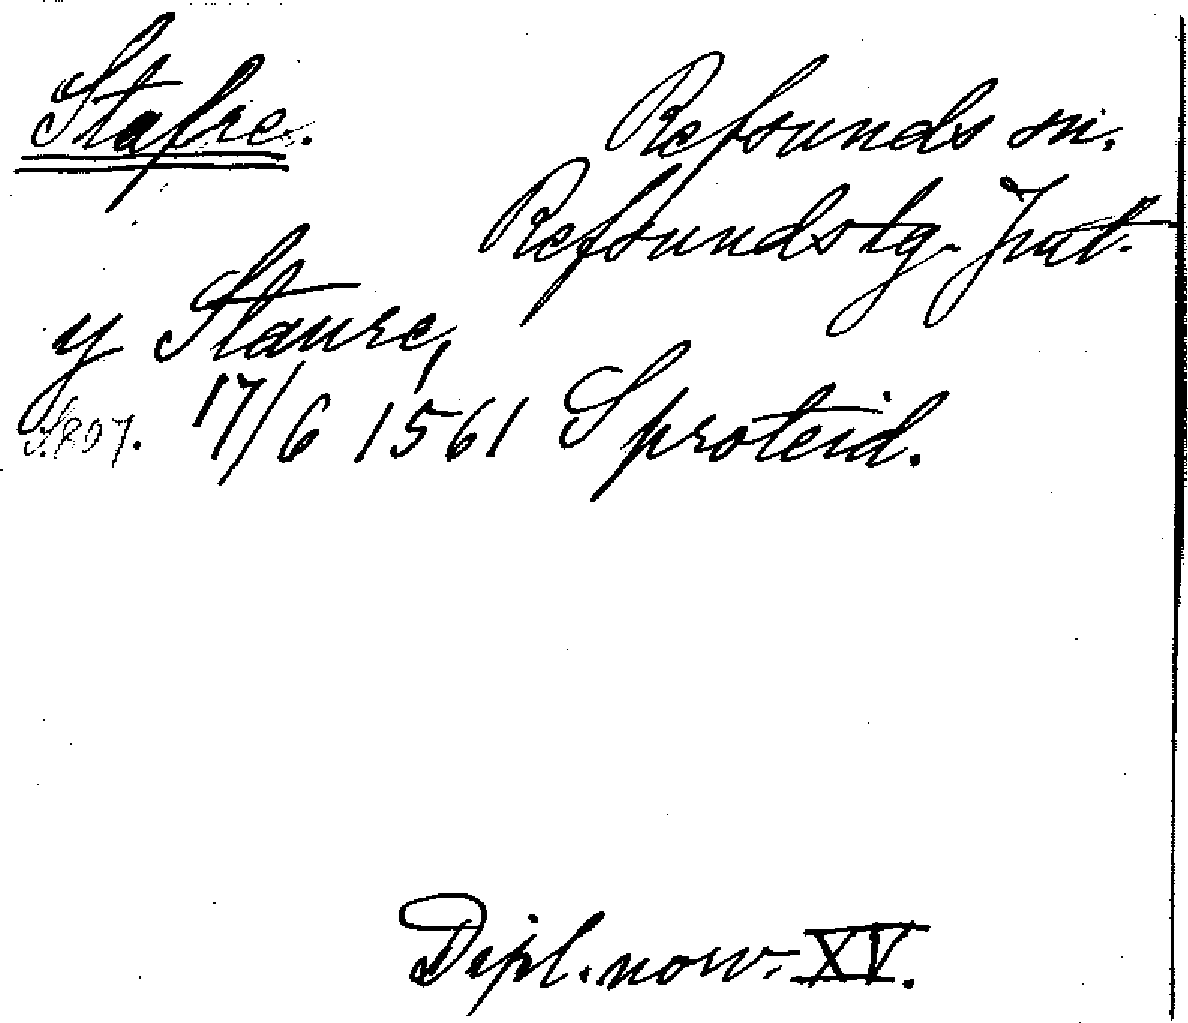 Stafre.
Refsunds sn.
Refsunds tg. Jmtl.
y Staure,
S.807. 17/6 1561 Sproteid.
Dipl. norv. XV.